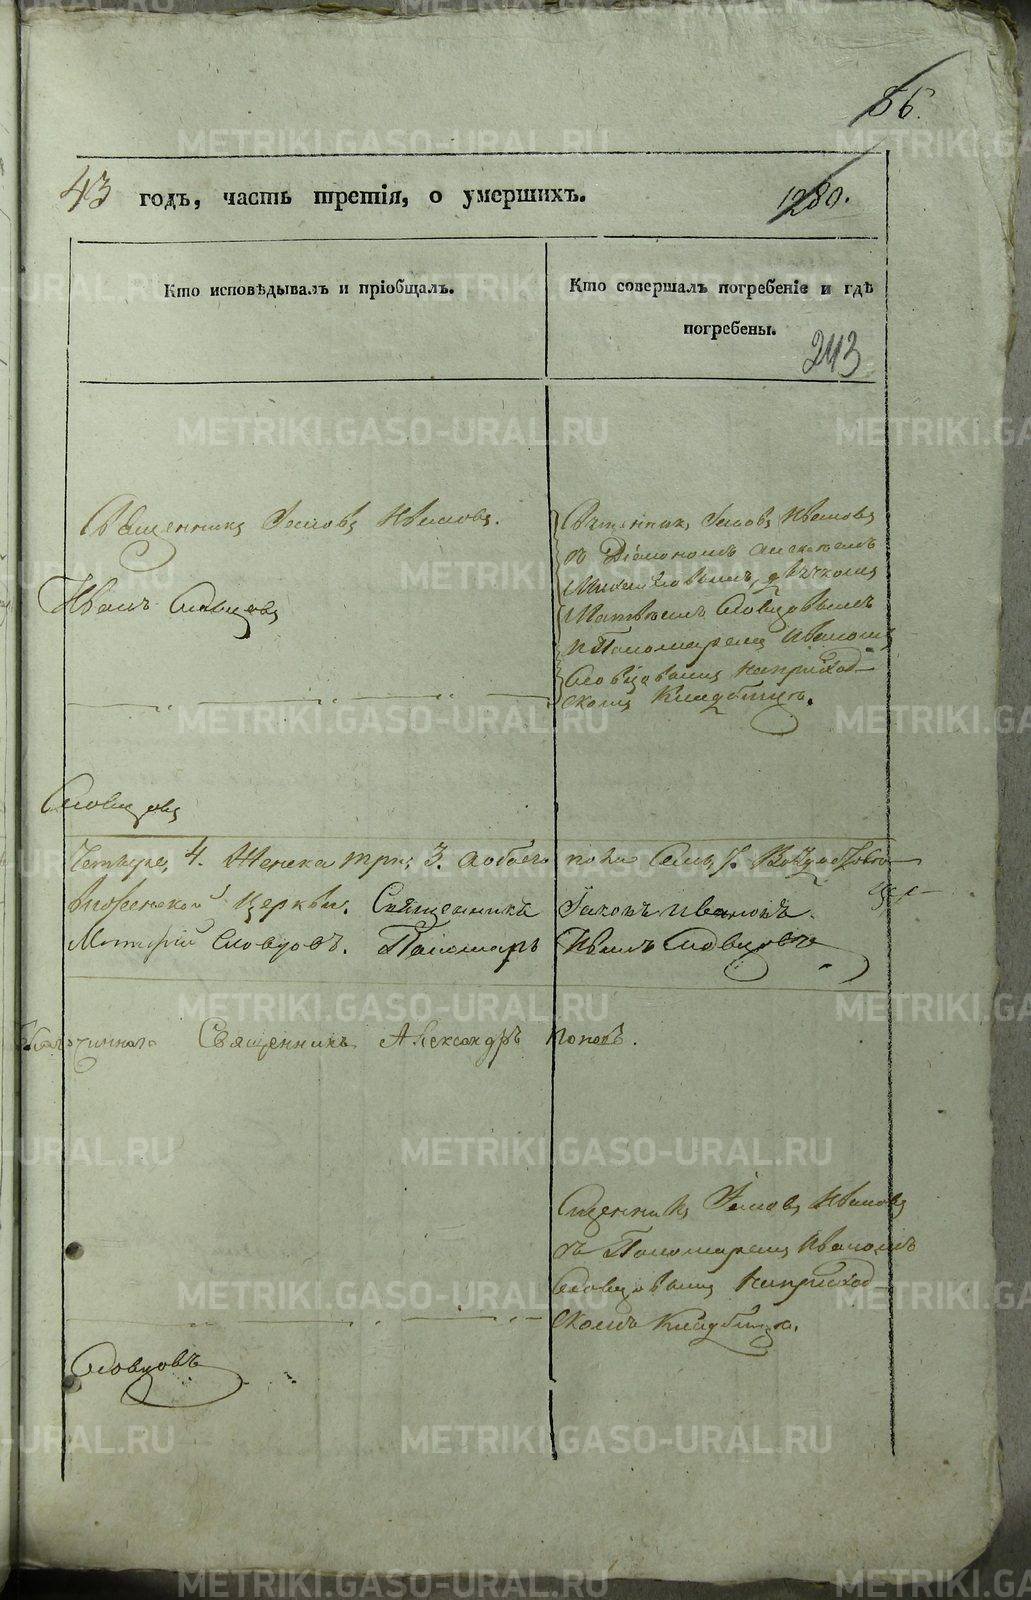 86.
43 годъ, часть третія, о умершихъ.
1280.
Кто исповѣдывалъ и пріобщалъ.
Кто совершалъ погребеніе и гдѣ
погребены.
243
Священникъ Іаковъ Ивановъ.
Иванъ Словцовъ
Священникъ Іаковъ Ивановъ
съ Діакономъ Алексѣемъ
Михайловымъ, дьячкомъ
Матвѣемъ Словцовымъ
и Пономаремъ Иваномъ
Словцовымъ на приход-
скомъ Кладбищѣ.
Словцовъ
Четыре, 4. Женска три, 3. а обоего пола Семь, 7.
Церкви. Священникъ Іаковъ Ивановъ.
Словцовъ. Пономарь Иванъ Словцовъ
Священникъ Александръ Поповъ.
Сщенникъ Іаковъ Ивановъ
съ Пономаремъ Иваномъ
Словцовымъ на приход-
скомъ Кладбищѣ.
Словцовъ
METRIKI.GASO-URAL.RU